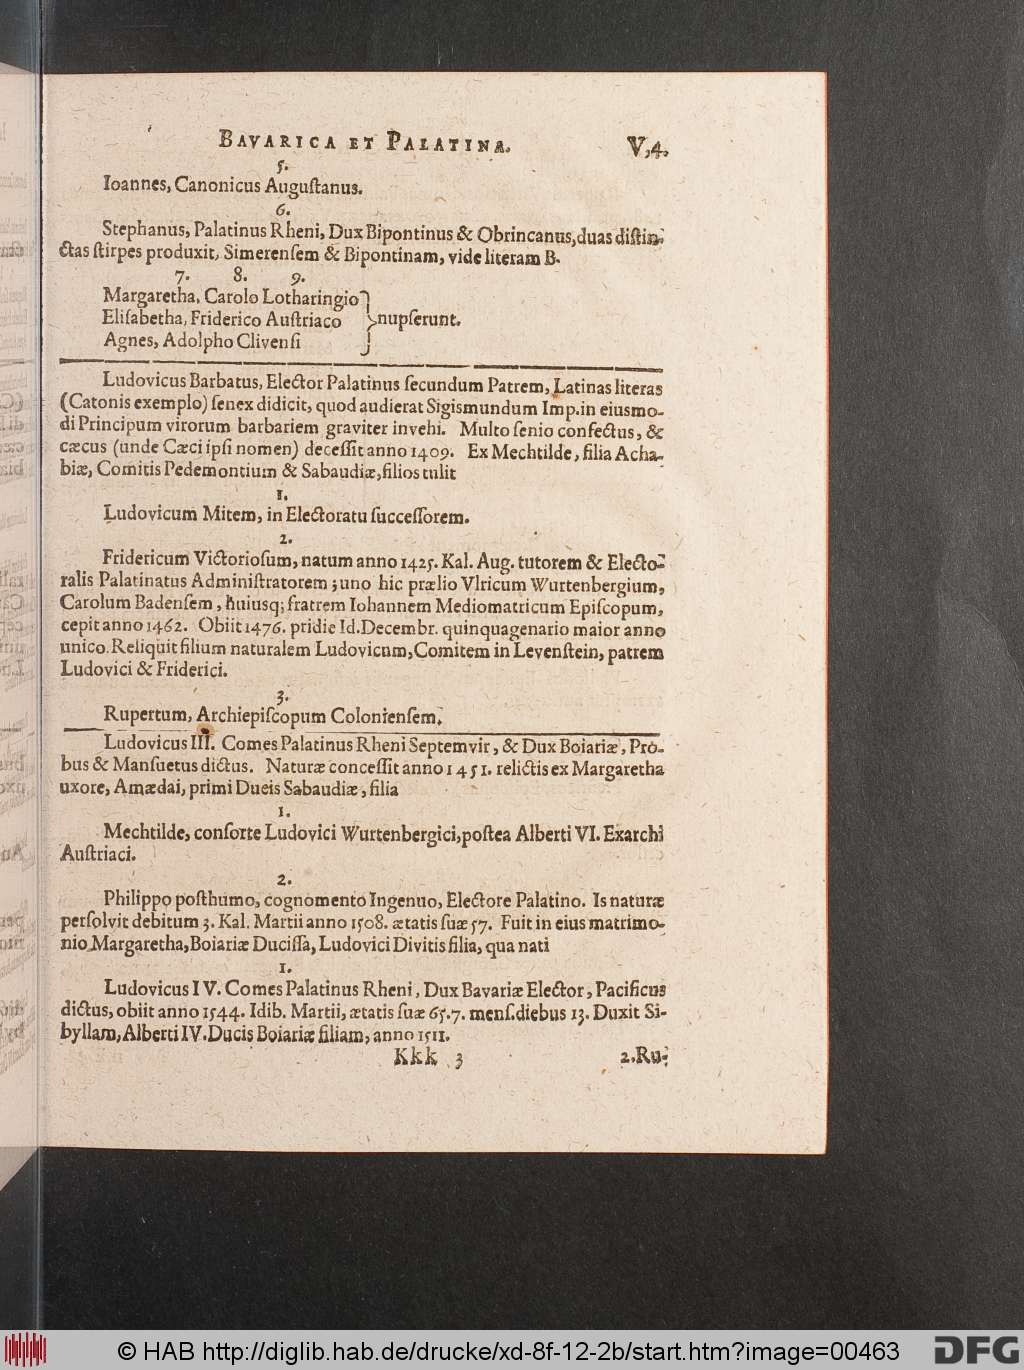 BAVARICA ET PALATINA. V,4.
5.
Ioannes, Canonicus Auguſtanus.
6.
Stephanus, Palatinus Rheni, Dux Bipontinus & Obrincanus, duas diſtin-
ctas ſtirpes produxit, Simerenſem & Bipontinam, vide literam B.
7. 8. 9.
Margaretha, Carolo Lotharingio
Eliſabetha, Friderico Auſtriaco } nupſerunt.
Agnes, Adolpho Clivenſi
Ludovicus Barbatus, Elector Palatinus ſecundum Patrem, Latinas literas
(Catonis exemplo) ſenex didicit, quod audierat Sigismundum Imp. in eiusmo-
di Principum virorum barbariem graviter invehi. Multo ſenio confectus, &
cæcus (unde Cæci ipſi nomen) deceſſit anno 1409. Ex Mechtilde, filia Acha-
biæ, Comitis Pedemontium & Sabaudiæ, filios tulit
1.
Ludovicum Mitem, in Electoratu ſucceſſorem.
2.
Fridericum Victorioſum, natum anno 1425. Kal. Aug. tutorem & Electo-
ralis Palatinatus Adminiſtratorem; uno hic prælio Vlricum Wurtenbergium,
Carolum Badenſem, huiusq; fratrem Iohannem Mediomatricum Epiſcopum,
cepit anno 1462. Obiit 1476. pridie Id. Decembr. quinquagenario maior anno
unico. Reliquit filium naturalem Ludovicum, Comitem in Levenſtein, patrem
Ludovici & Friderici.
3.
Rupertum, Archiepiſcopum Colonienſem.
Ludovicus III. Comes Palatinus Rheni Septemvir, & Dux Boiariæ, Pro-
bus & Manſuetus dictus. Naturæ conceſſit anno 1451. relictis ex Margaretha
uxore, Amædai, primi Ducis Sabaudiæ, filia
1.
Mechtilde, conſorte Ludovici Wurtenbergici, poſtea Alberti VI. Exarchi
Auſtriaci.
2.
Philippo poſthumo, cognomento Ingenuo, Electore Palatino. Is naturæ
perſolvit debitum 3. Kal. Martii anno 1508. ætatis ſuæ 57. Fuit in eius matrimo-
nio Margaretha, Boiariæ Duciſſa, Ludovici Divitis filia, qua nati
1.
Ludovicus IV. Comes Palatinus Rheni, Dux Bavariæ Elector, Pacificus
dictus, obiit anno 1544. Idib. Martii, ætatis ſuæ 65. 7. menſ. diebus 13. Duxit Si-
byllam, Alberti IV. Ducis Boiariæ filiam, anno 1511.
Kkk 3 2. Ru-
© HAB http://diglib.hab.de/drucke/xd-8f-12-2b/start.htm?image=00463 DFG